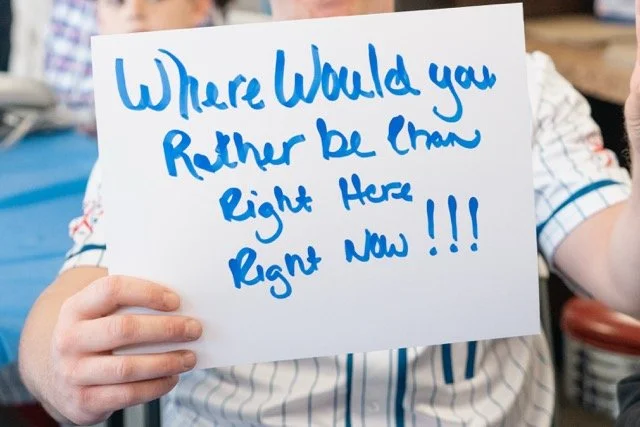 Where Would you
Rather be than
Right Here
Right Now !!!